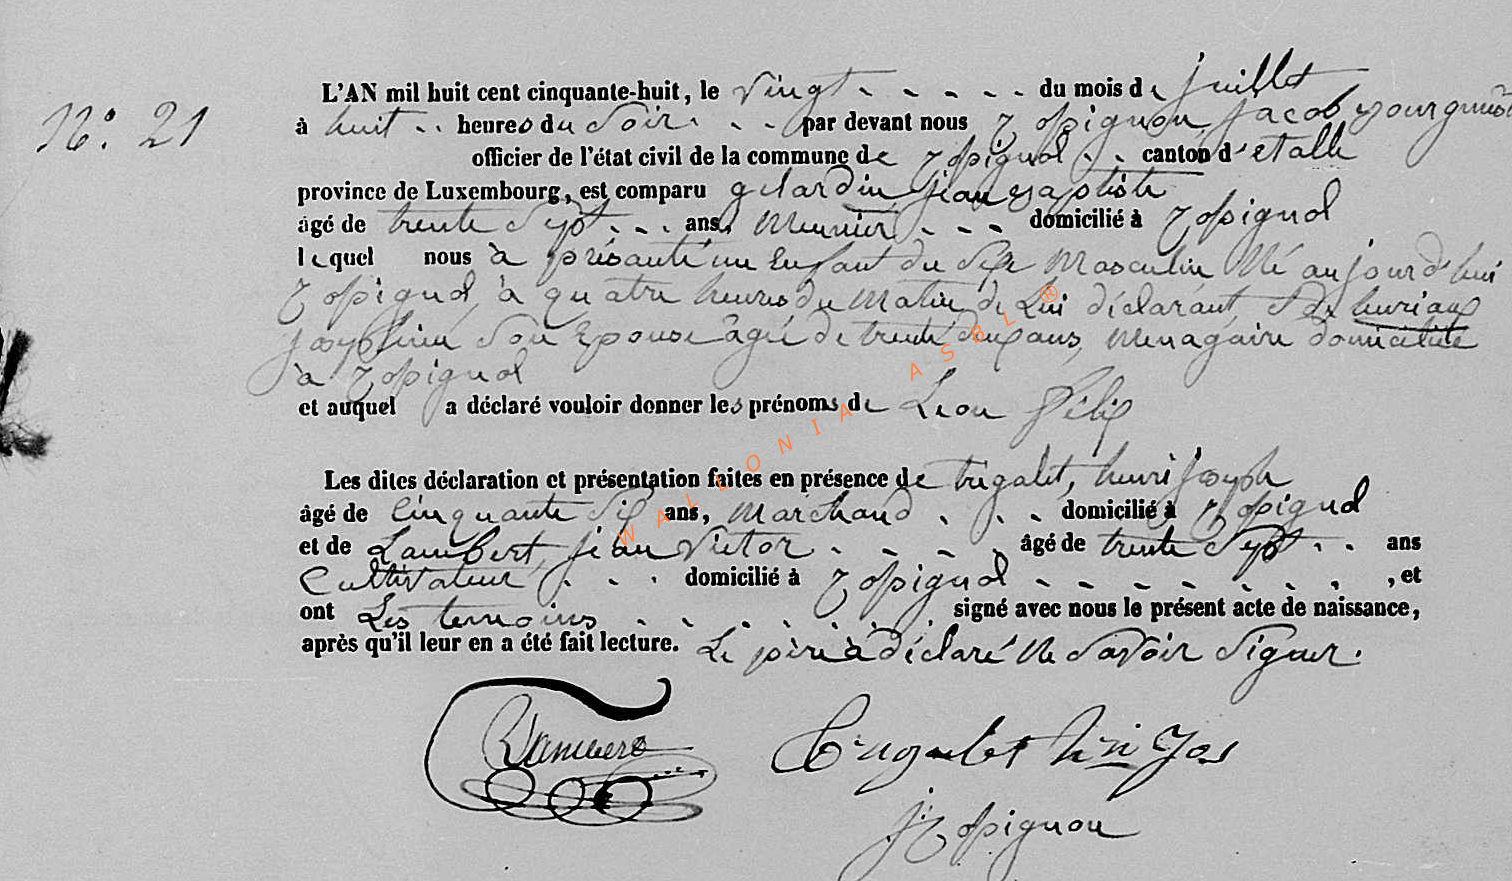 N°. 21
L'AN mil huit cent cinquante-huit, le vingt - - - - - du mois de juillet
à huit - - heures du soir - - - par devant nous Zopignon, jacob,
officier de l'état civil de la commune de Zopignol - - canton d'etalle
province de Luxembourg, est comparu gelardin jean baptiste
âgé de trente sept - - - ans, meunier - - - domicilié à Zopignol
lequel nous à présanté un enfant du sexe masculin né aujourd'hui
Zopignol, à quatre heures du matin de Lui déclarant,
josephine son epouse âgée de trente deux ans, ménagaire domiciliée
à Zopignol
et auquel a déclaré vouloir donner les prénoms de Léon Félix
Les dites déclaration et présentation faites en présence de trigalet, henri joseph
âgé de cinquante six ans, marchand - - - domicilié à Zopignol
et de Lambert, jean victor - - - - - âgé de trente sept - - ans
Cultivateur - - - domicilié à Zopignol - - - - - - - - , et
ont Les temoins - - - - - - signé avec nous le présent acte de naissance,
après qu'il leur en a été fait lecture. Le père à déclaré ne savoir signer.
j Zopignon
WALLONIA ASBL®